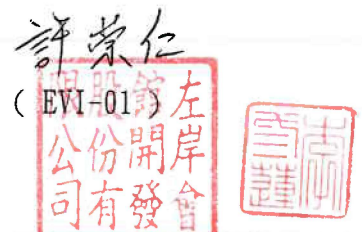 許榮仁
( EVI-01 )
左岸會
館開發
股份有
限公司
李
雪蓮